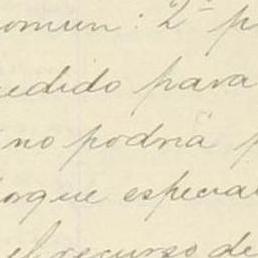 omun: 2ª p
edido para
no podria p
orque especia
el recurso de